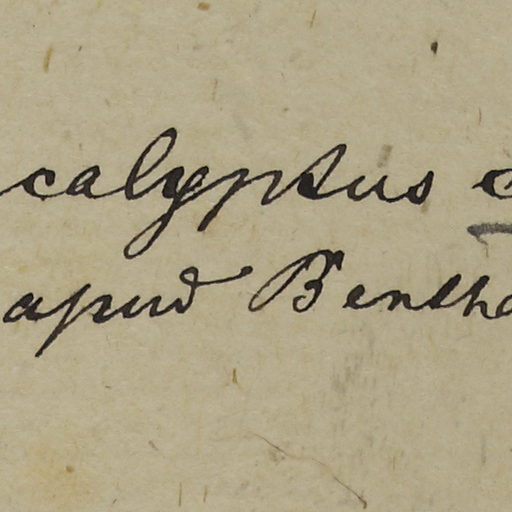 calyptus c
apud Bentha